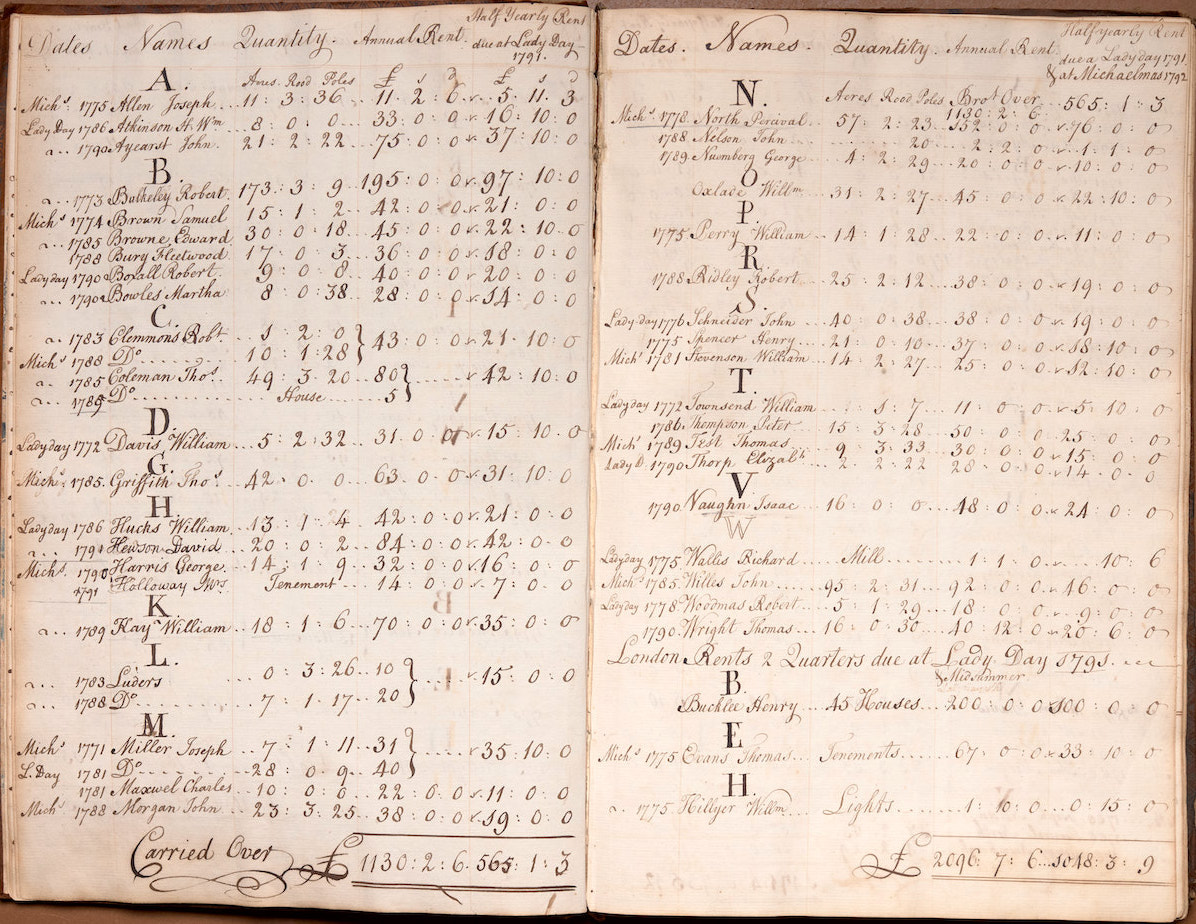 Dates Names Quantity. Annual Rent. Half Yearly Rent
due at Lady Day
1791.
A. Acres Rood Poles £ s d £ s d
Michs. 1775 Allen Joseph 11 : 3 : 36 11 : 2 : 6 5 : 11 : 3
Lady Day 1786 Atkinson Wm 8 : 0 : 0 33 : 0 : 0 16 : 10 : 0
a 1790 Ayearst John 21 : 2 : 22 75 : 0 : 0 37 : 10 : 0
B.
a 1773 Bulkeley Robert 173 : 3 : 9 195 : 0 : 0 97 : 10 : 0
Michs 1774 Brown Samuel 15 : 1 : 2 42 : 0 : 0 21 : 0 : 0
a 1785 Browne Edward 30 : 0 : 18 45 : 0 : 0 22 : 10 : 0
1788 Bury Fleetwood 17 : 0 : 3 36 : 0 : 0 18 : 0 : 0
Ladyday 1790 Boxall Robert 9 : 0 : 8 40 : 0 : 0 20 : 0 : 0
a 1790 Bowles Martha 8 : 0 : 38 28 : 0 : 0 14 : 0 : 0
C.
a 1783 Clemmons Robt. 1 : 2 : 0 } 43 : 0 : 0 21 : 10 : 0
Michs 1788 Do 10 : 1 : 28
a 1785 Coleman Thos. 49 : 3 : 20 80 } 42 : 10 : 0
a 1789 Do House 5
D.
Ladyday 1772 Davis William 5 : 2 : 32 31 : 0 : 0 15 : 10 : 0
G.
Michs 1785 Griffith Thos. 42 : 0 : 0 63 : 0 : 0 31 : 10 : 0
H.
Ladyday 1786 Hucks William 13 : 1 : 4 42 : 0 : 0 21 : 0 : 0
1791 Hewson David 20 : 0 : 2 84 : 0 : 0 42 : 0 : 0
Michs. 1790 Harris George 14 : 1 : 9 32 : 0 : 0 16 : 0 : 0
1791 Holloway Tenement 14 : 0 : 0 7 : 0 : 0
K.
a 1789 Kay William 18 : 1 : 6 70 : 0 : 0 35 : 0 : 0
L.
a 1783 Luders 0 : 3 : 26 10 } 15 : 0 : 0
a 1788 Do 7 : 1 : 17 20
M.
Michs 1771 Miller Joseph 7 : 1 : 11 31 } 35 : 10 : 0
L. Day 1781 Do 28 : 0 : 9 40
1781 Maxwel Charles 10 : 0 : 0 22 : 0 : 0 11 : 0 : 0
Michs 1788 Morgan John 23 : 3 : 25 38 : 0 : 0 19 : 0 : 0
Carried Over £ 1130 : 2 : 6 565 : 1 : 3
Dates. Names. Quantity. Annual Rent. Half yearly Rent
due a Ladyday 1791
& at Michaelmas 1792
N. Acres Rood Poles Brot Over 565 : 1 : 3
1130 : 2 : 6
Michs. 1778 North Percival 57 : 2 : 23 152 : 0 : 0 76 : 0 : 0
1788 Nelson John 20 2 : 2 : 0 1 : 1 : 0
1789 Numberg George 4 : 2 : 29 20 : 0 : 0 10 : 0 : 0
O
Oxlade Willm 31 : 2 : 27 45 : 0 : 0 22 : 10 : 0
P.
1775 Perry William 14 : 1 : 28 22 : 0 : 0 11 : 0 : 0
R
1788 Ridley Robert 25 : 2 : 12 38 : 0 : 0 19 : 0 : 0
S.
Lady-day 1776 Schneider John 40 : 0 : 38 38 : 0 : 0 19 : 0 : 0
1775 Spencer Henry 21 : 0 : 10 37 : 0 : 0 18 : 10 : 0
Michs 1781 Stevenson William 14 : 2 : 27 25 : 0 : 0 12 : 10 : 0
T.
Ladyday 1772 Townsend William 1 : 7 11 : 0 : 0 5 : 10 : 0
1786 Thompson Peter 15 : 3 : 28 50 : 0 : 0 25 : 0 : 0
Michs 1789 Test Thomas 9 : 3 : 33 30 : 0 : 0 15 : 0 : 0
Lady D. 1790 Thorp Elizabth 2 : 2 : 22 28 : 0 : 0 14 : 0 : 0
V
1790 Vaughn Isaac 16 : 0 : 0 48 : 0 : 0 24 : 0 : 0
W
Ladyday 1775 Wallis Richard Mill 1 : 1 : 0 10 : 6
Michs 1785 Willis John 95 : 2 : 31 92 : 0 : 0 46 : 0 : 0
Ladyday 1778 Woodmas Robert 5 : 1 : 29 18 : 0 : 0 9 : 0 : 0
1790 Wright Thomas 16 : 0 : 30 40 : 12 : 0 20 : 6 : 0
London Rents 2 Quarters due at Lady Day 1791.
& Midsummer
B
Bucklee Henry 45 Houses 200 : 0 : 0 100 : 0 : 0
E
Michs 1775 Evans Thomas Tenements 67 : 0 : 0 33 : 10 : 0
H
a 1775 Hillyer Willm Lights 1 : 10 : 0 0 : 15 : 0
£ 2096 : 7 : 6 1048 : 3 : 9